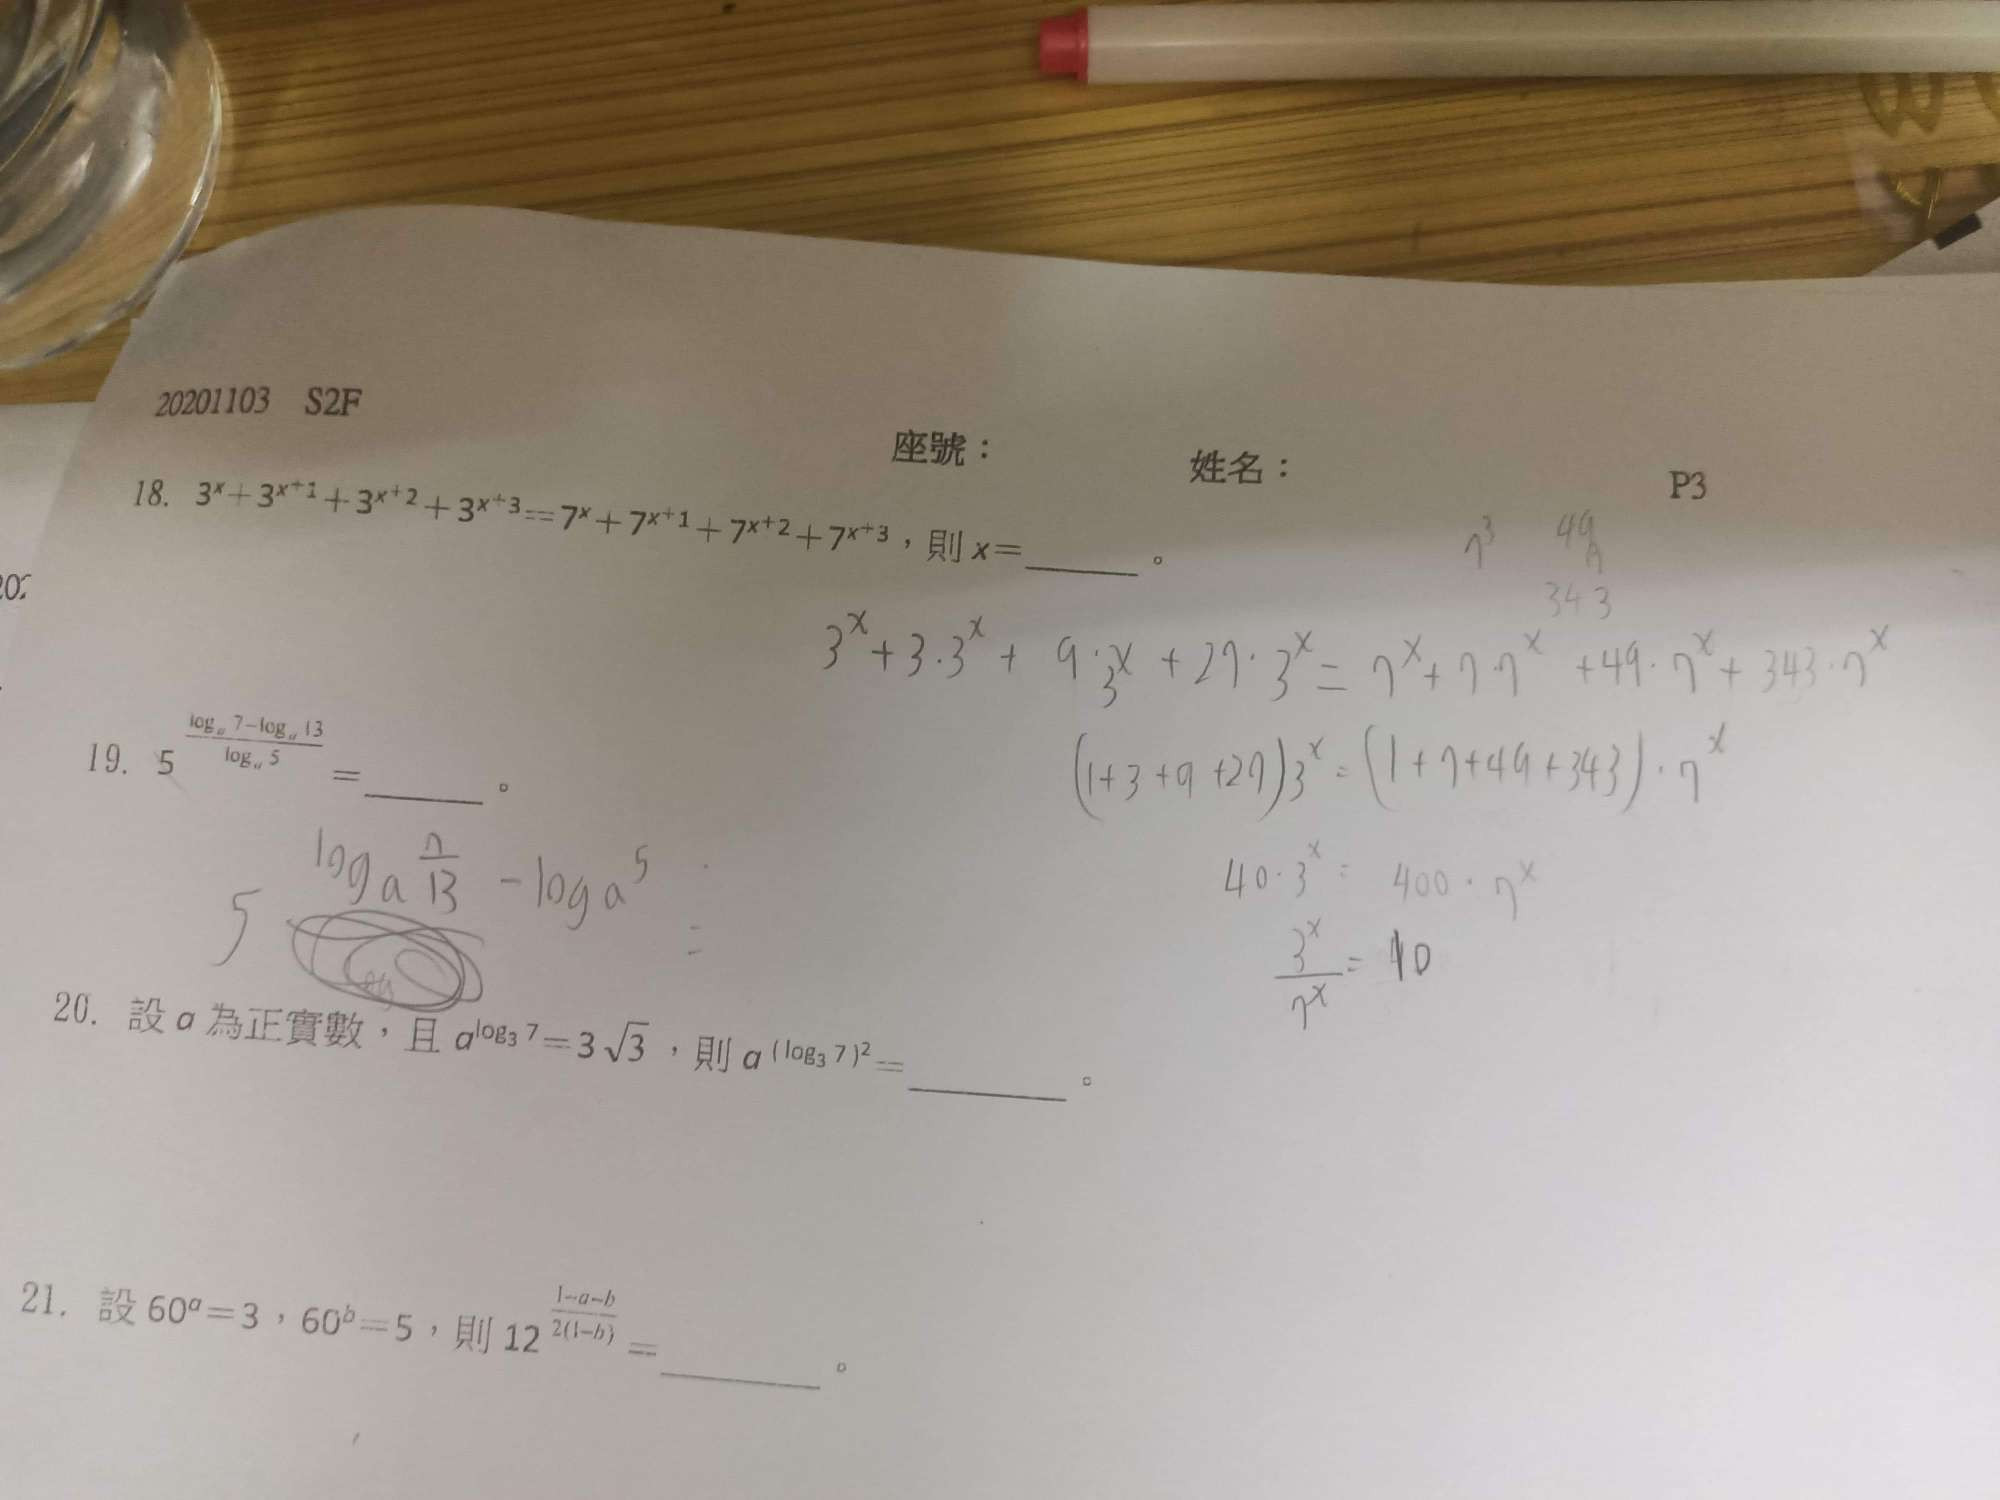 20201103 S2F
座號：
姓名：
P3
18. 3ˣ+3ˣ⁺¹+3ˣ⁺²+3ˣ⁺³=7ˣ+7ˣ⁺¹+7ˣ⁺²+7ˣ⁺³，則 x=______。
7³ 49
7
343
3ˣ+3·3ˣ+9·3ˣ+27·3ˣ=7ˣ+7·7ˣ+49·7ˣ+343·7ˣ
(1+3+9+27)3ˣ=(1+7+49+343)·7ˣ
40·3ˣ=400·7ˣ
3ˣ/7ˣ=10
19. 5^((logₐ 7−logₐ 13)/(logₐ 5))=______。
5^(logₐ 7/13 − logₐ 5) =
20. 設 a 為正實數，且 a^(log₃ 7)=3√3，則 a^((log₃ 7)²)=______。
21. 設 60ᵃ=3，60ᵇ=5，則 12^((1−a−b)/(2(1−b)))=______。